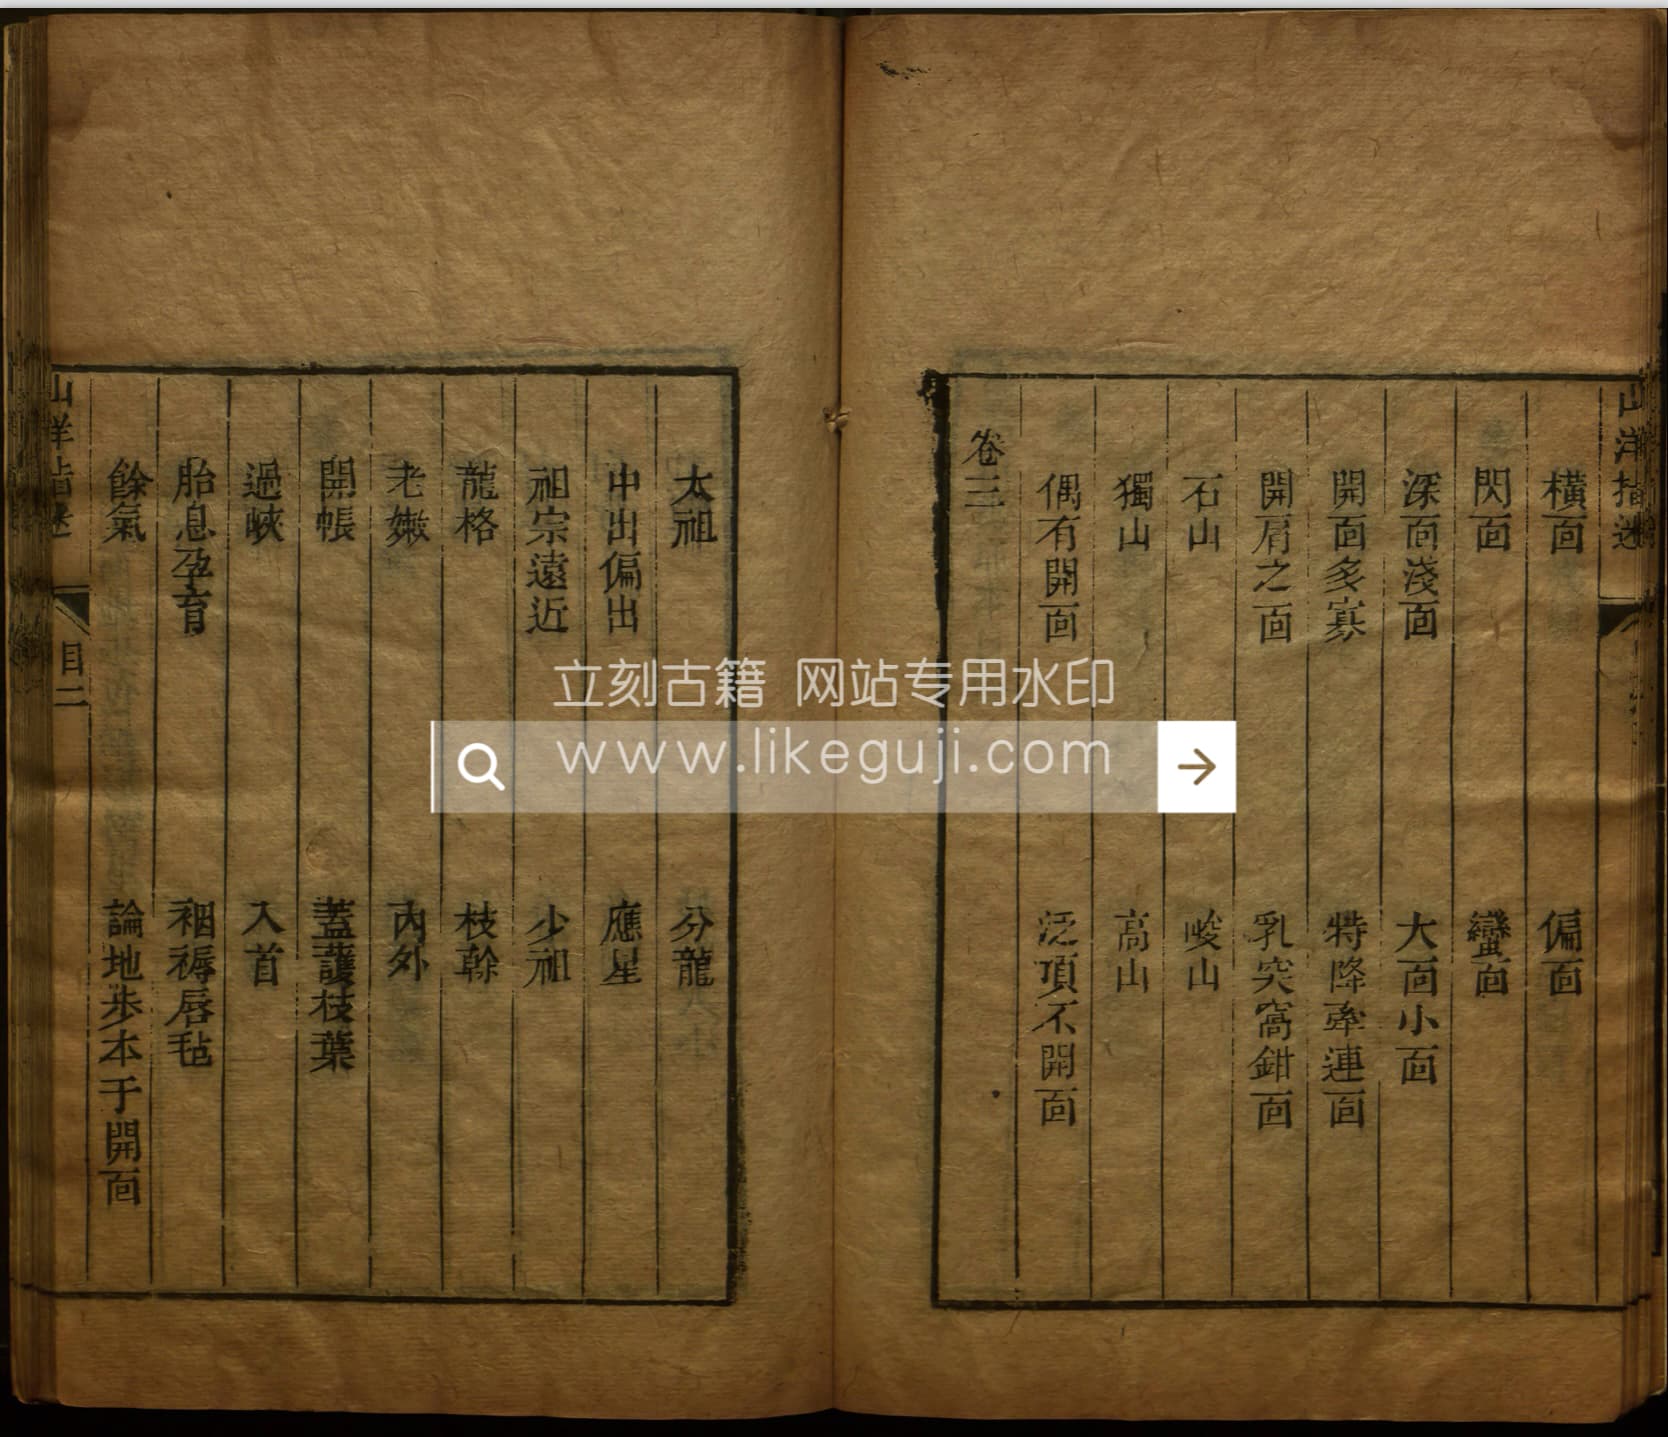 山洋指迷
橫面 偏面
閃面 蠻面
深面淺面 大面小面
開面多寡 特降牽連面
開肩之面 乳突窩鉗面
石山 峻山
獨山 高山
偶有開面 泛頂不開面
卷三
太祖 分龍
中出偏出 應星
祖宗遠近 少祖
龍格 枝幹
老嫩 內外
開帳 蓋護枝葉
過峽 入首
胎息孕育 裀褥唇毡
餘氣 論地步本于開面
山洋指迷
目二
立刻古籍 网站专用水印
www.likeguji.com